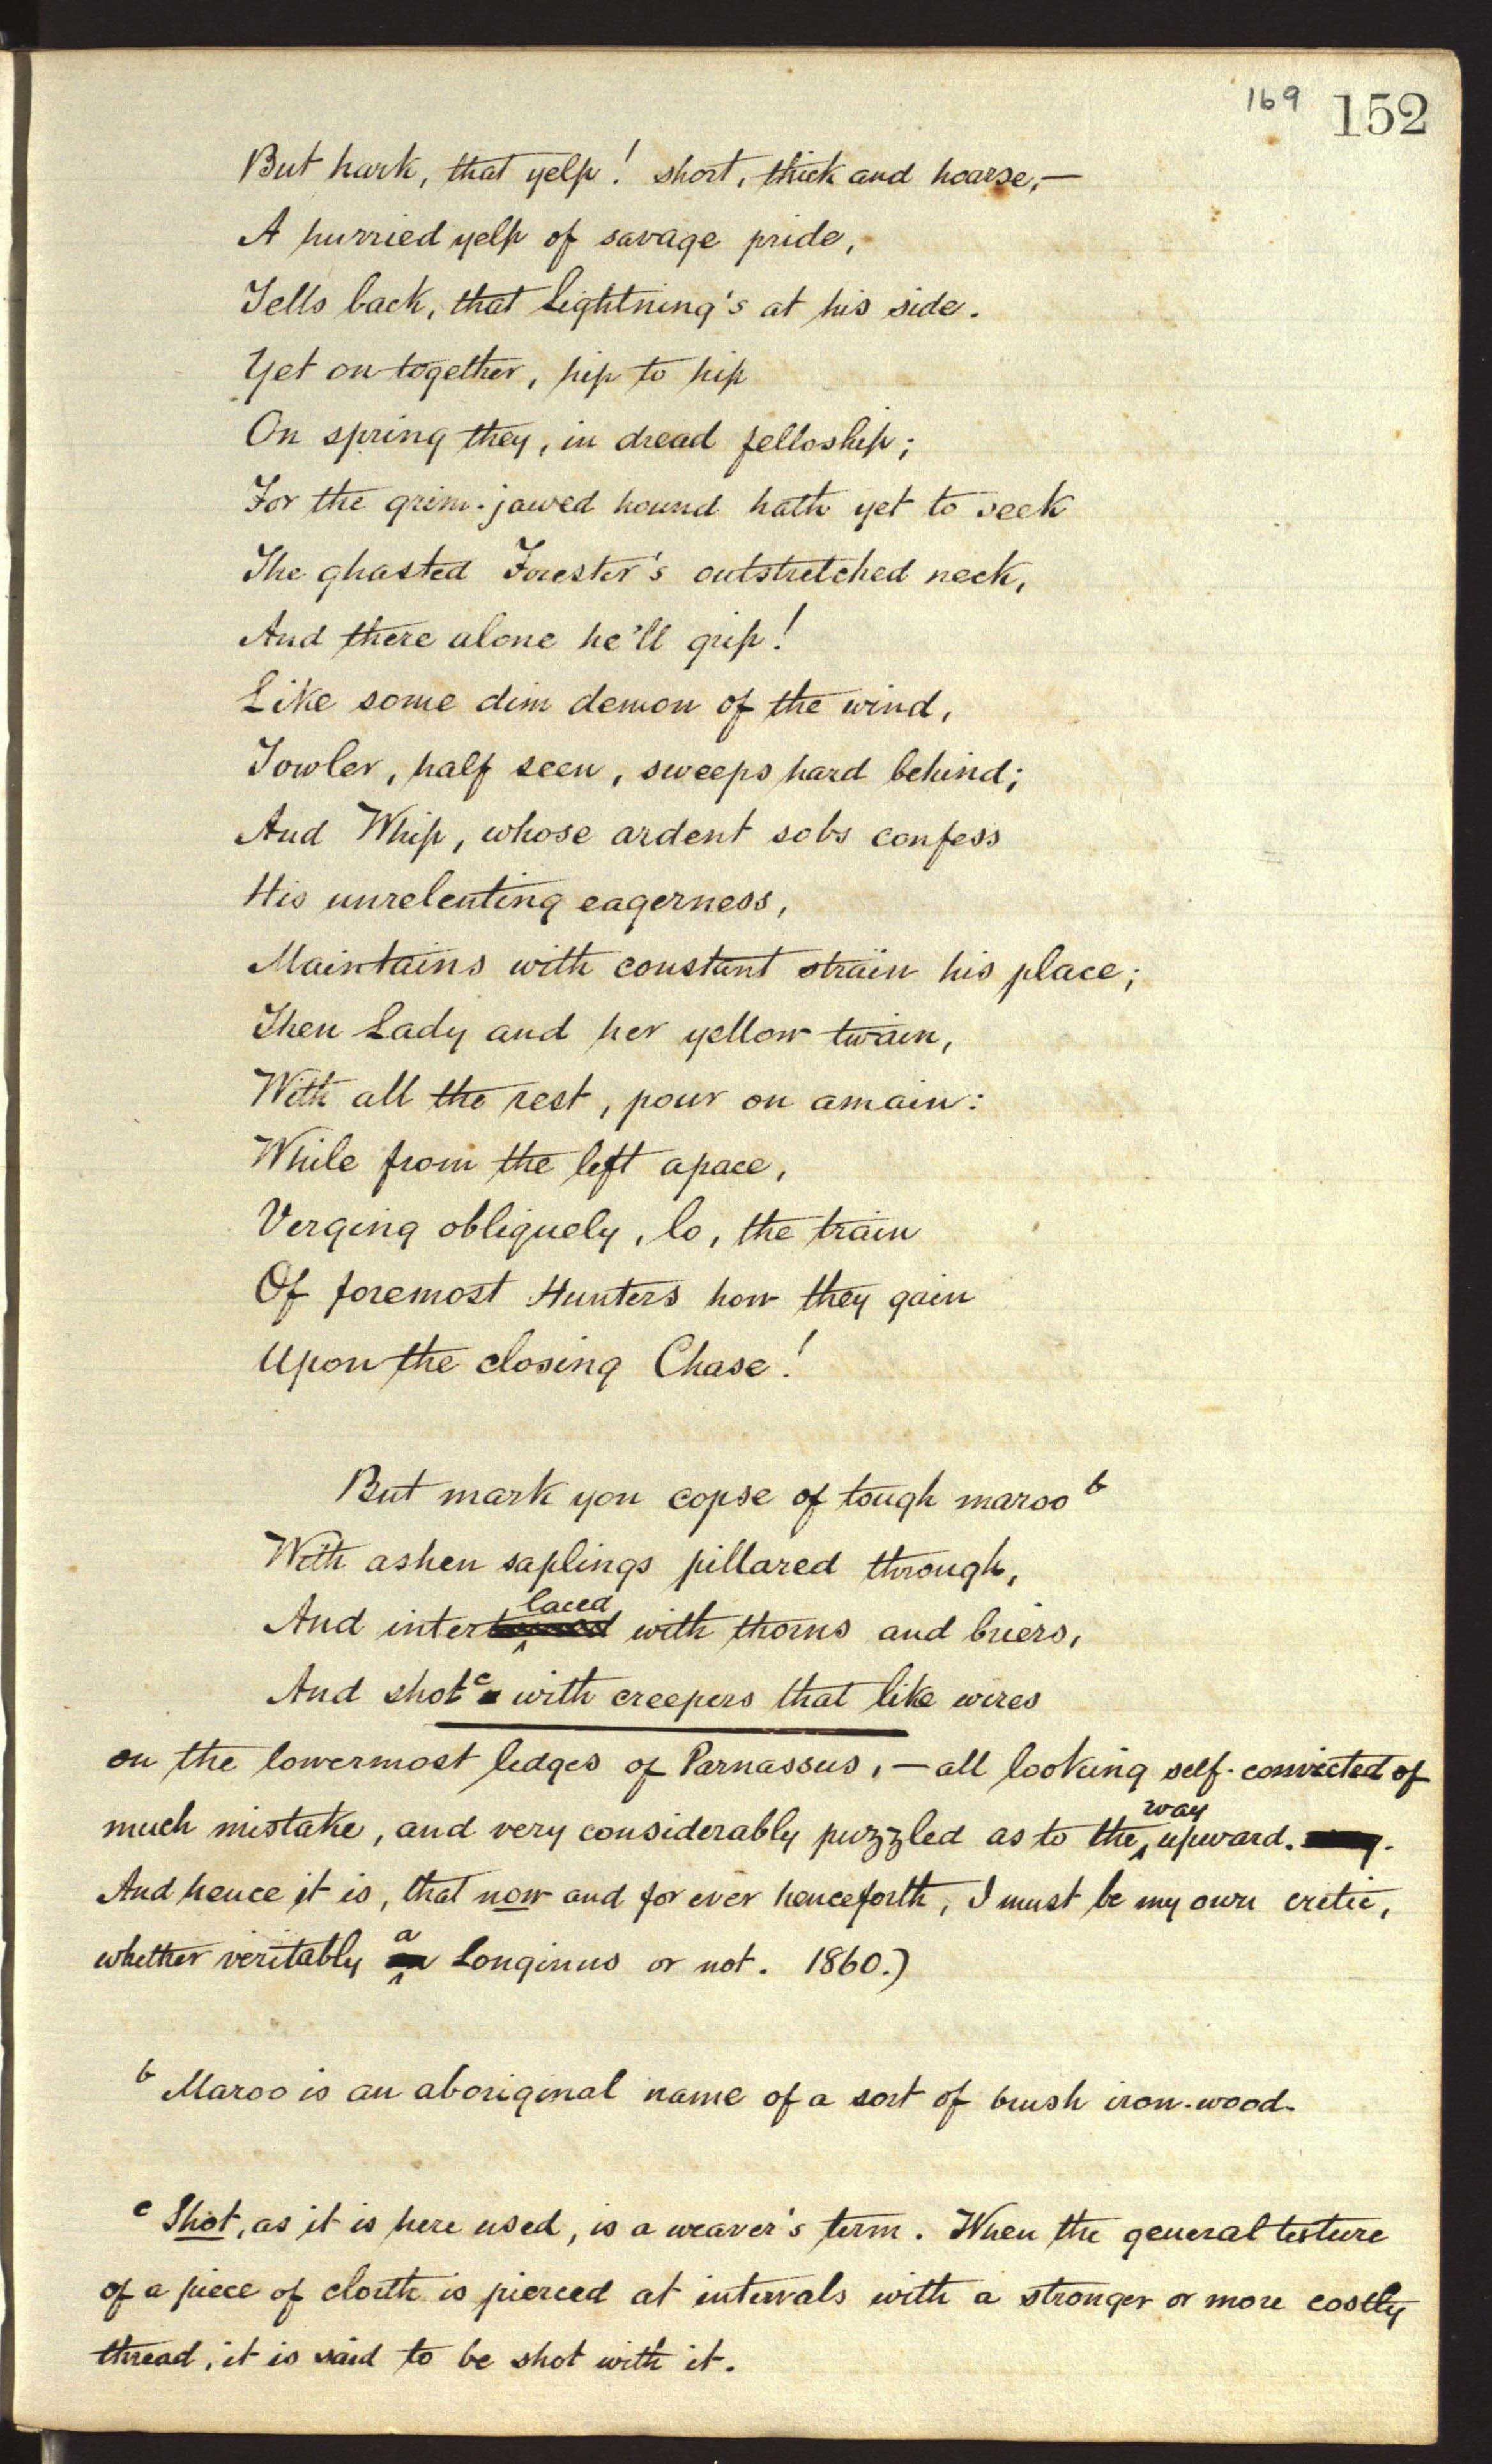 169 152
But hark, that yelp! short, thick and hoarse,—
A hurried yelp of savage pride,
Tells back, that Lightning's at his side.
Yet on together, hip to hip
On spring they, in dread felloship;
For the grim-jawed hound hath yet to seek
The ghasted Forester's outstretched neck,
And there alone he'll grip!
Like some dim demon of the wind,
Towler, half seen, sweeps hard behind;
And Whip, whose ardent sobs confess
His unrelenting eagerness,
Maintains with constant strain his place;
Then Lady and her yellow twain,
With all the rest, pour on amain:
While from the left apace,
Verging obliquely, lo, the train
Of foremost Hunters how they gain
Upon the closing Chase!
But mark yon copse of tough maroo b
With ashen saplings pillared through,
And interlaced with thorns and briers,
And shot c with creepers that like wires
on the lowermost ledges of Parnassus,—all looking self-convicted of
much mistake, and very considerably puzzled as to the way upward.
And hence it is, that now and for ever henceforth, I must be my own critic,
whether veritably a Longinus or not. 1860.)
b Maroo is an aboriginal name of a sort of brush iron-wood.
c Shot, as it is here used, is a weaver's term. When the general texture
of a piece of cloth is pierced at intervals with a stronger or more costly
thread, it is said to be shot with it.